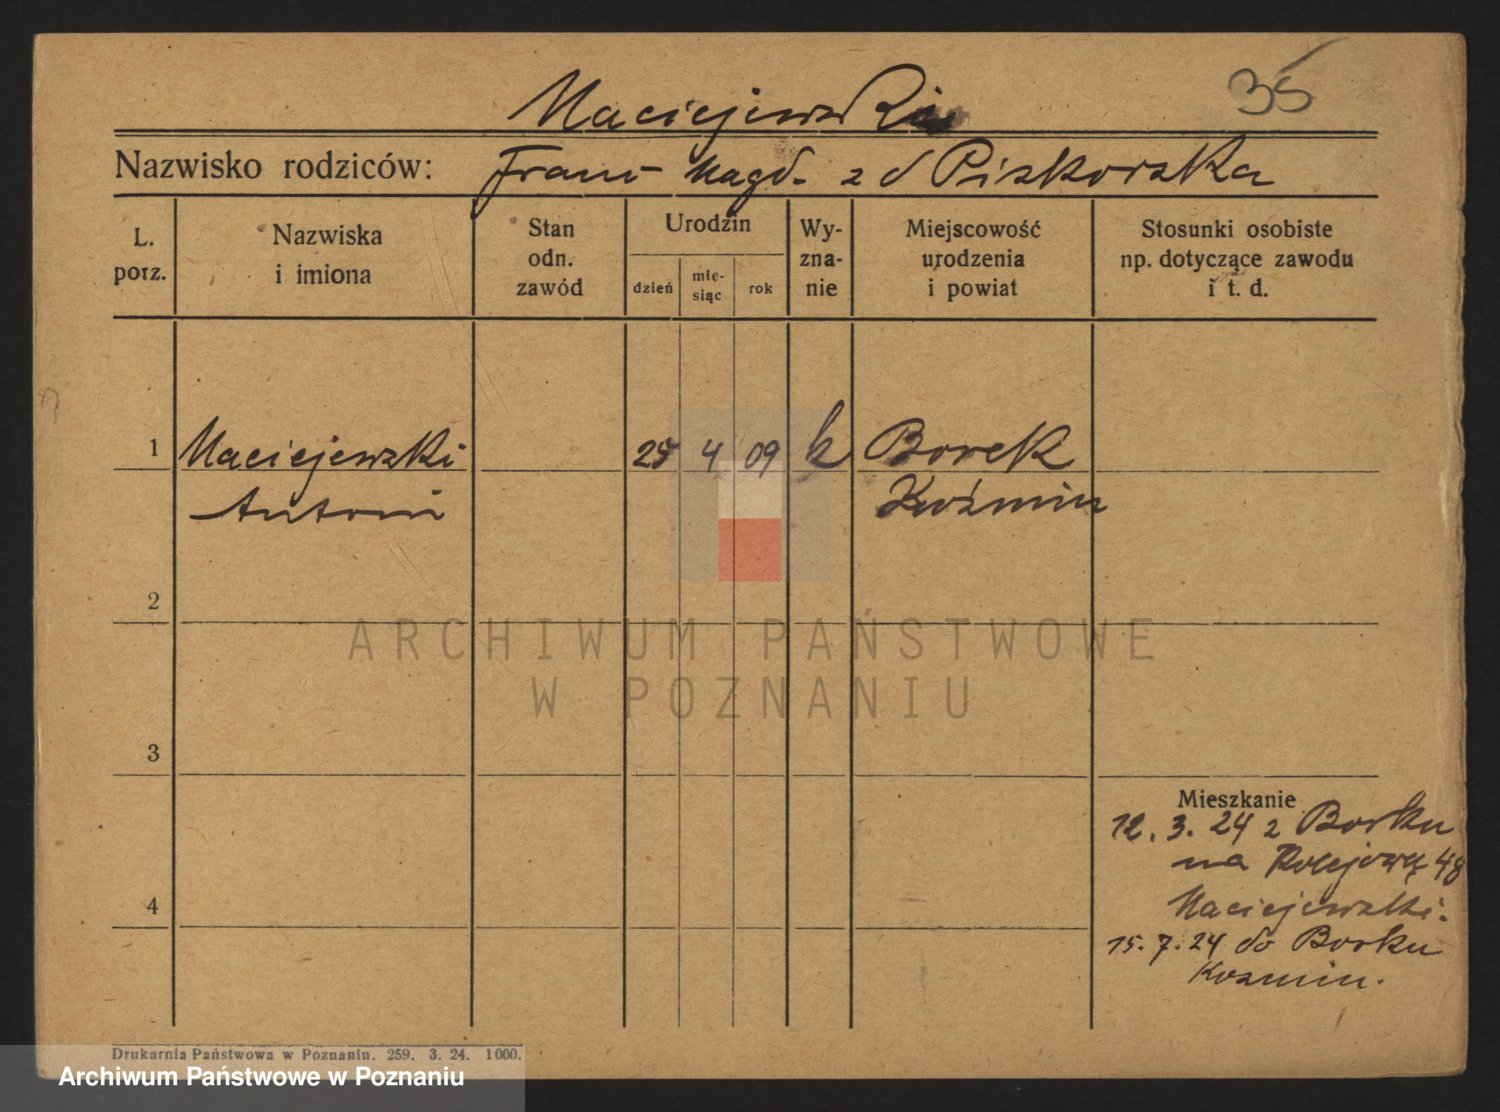 35
Maciejewski
Nazwisko rodziców: Franc Magd. z d Piskorska
L. porz.
Nazwiska i imiona
Stan odn. zawód
Urodzin
dzień
mie-siąc
rok
Wy-zna-nie
Miejscowość urodzenia i powiat
Stosunki osobiste np. dotyczące zawodu i t. d.
1 Maciejewski 25 4 09 k Borek
Antoni Koźmin
2
ARCHIWUM PAŃSTWOWE
W POZNANIU
3
Mieszkanie
12. 3. 24 z Borku
na Kolejową 48
Maciejewski.
4
15. 7. 24 do Borku
Kozmin.
Drukarnia Państwowa w Poznaniu. 259. 3. 24. 1000.
Archiwum Państwowe w Poznaniu